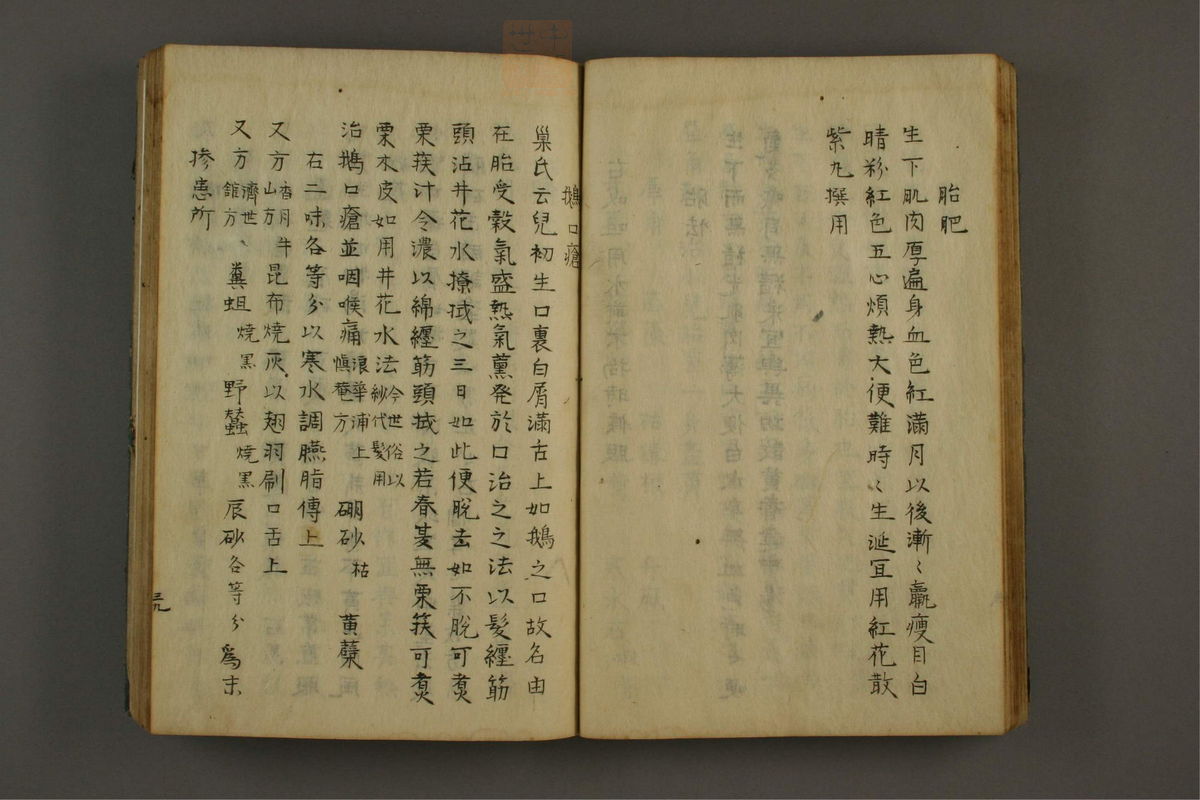 胎肥
生下肌肉厚遍身血色紅滿月以後漸〻羸瘦目白
睛粉紅色五心煩熱大便難時〻生涎宜用紅花散
紫丸撰用
鵝口瘡
巢氏云兒初生口裏白屑滿舌上如鵝之口故名由
在胎受穀氣盛熱氣薰発於口治之之法以髮纏筋
頭沾井花水撩拭之三日如此便脫去如不脫可煑
栗蔟汁令濃以綿纏筋頭拭之若春夏無栗蔟可煑
栗木皮如用井花水法今世俗以紗代髮用
治鵝口瘡並咽喉痛浪華浦上愼菴方 硼砂枯 黃蘗
右二味各等分以寒水調臙脂傳上
又方香月牛山方昆布燒灰以翅羽刷口舌上
又方濟世館方、糞蛆燒黑 野蠶燒黑 辰砂各等分為末
摻患所
三九